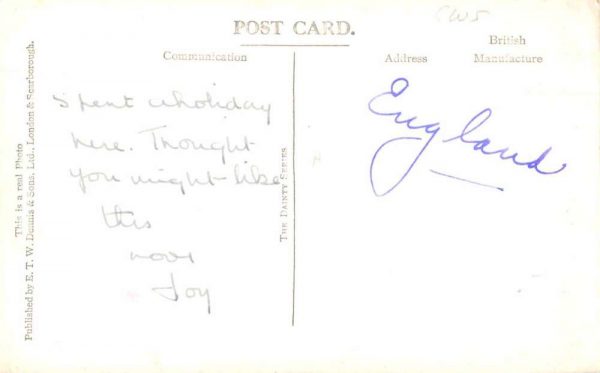 POST CARD.
Communication
Address
British
Manufacture
This is a real Photo
Published by E. T. W. Dennis & Sons, Ltd., London & Scarborough.
THE DAINTY SERIES
Spent a holiday
here. Thought
you might like
this
Joy
England